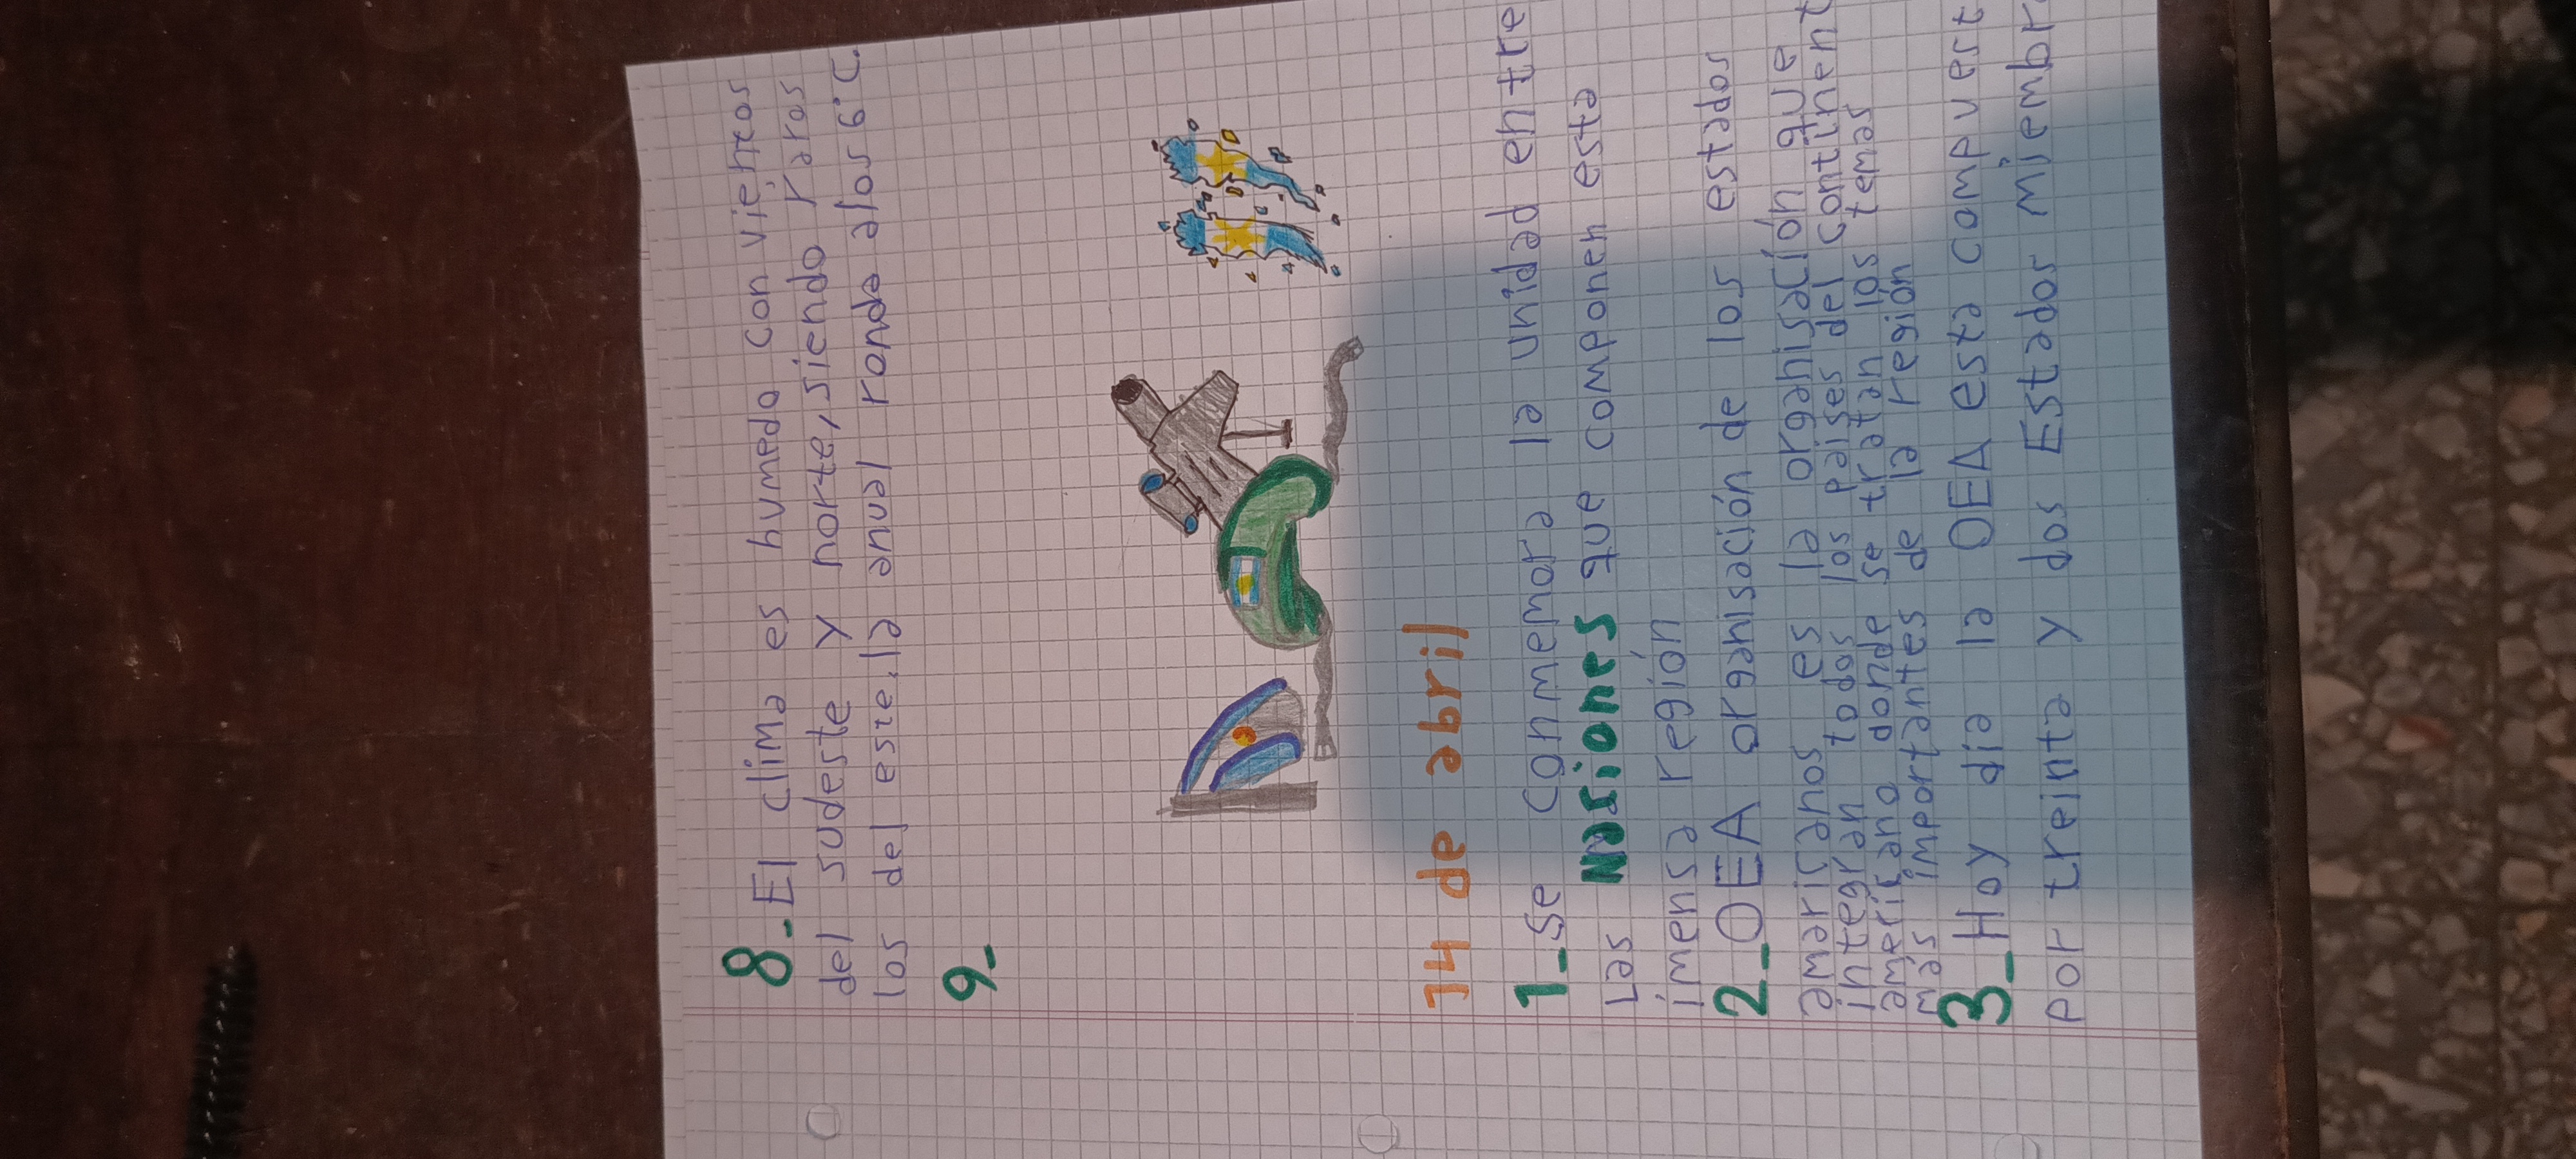 8_El clima es humedo con vientos
del sudeste y norte, siendo raros
los del este. la anual ronda alos 6°C.
9_
14 de abril
1_se conmemora la unidad entre
Las Nasiones que componen esta
imensa región
2_OEA organisación de los estados
amarisanos es la organisación que
integran todos los paises del continent
amerisano donde se tratan los temas
mas importantes de la región
3_Hoy dia la OEA esta compuest
por treinta y dos Estados miembr